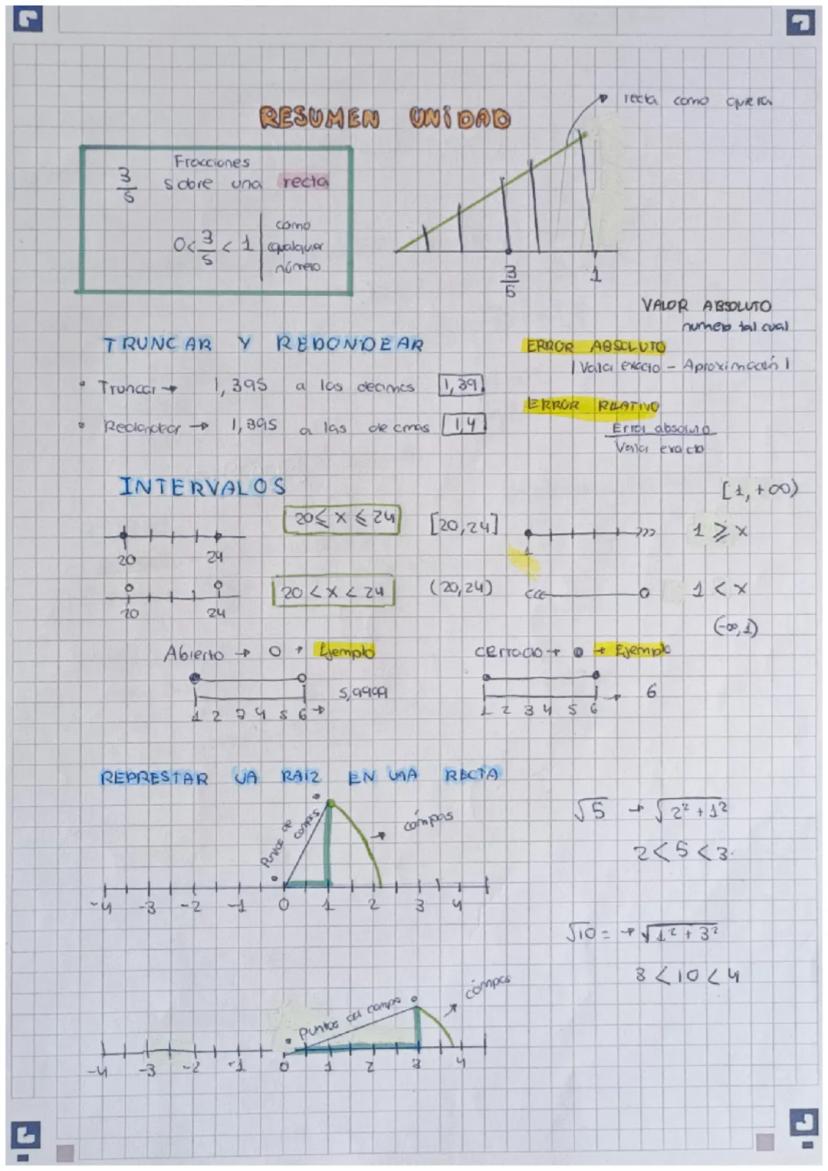 RESUMEN UNIDAD
recta como quera
3/5 Fracciones
sobre una recta
0<3/5<1 como
cualquier
número
3/5 1
VALOR ABSOLUTO
numero tal cual
TRUNCAR Y REDONDEAR
ERROR ABSOLUTO
| Valor exacto - Aproximación |
• Truncar → 1,395 a las decimas 1,39
ERROR RELATIVO
• Redondear → 1,395 a las decimas 1,4
Error absoluto
Valor exacto
INTERVALOS
[1,+∞)
20≤x≤24 [20,24] 1≥x
20 24 1
20<x<24 (20,24) 1<x
20 24
(-∞,1)
Abierto → o → Ejemplo
cerrado → • → Ejemplo
5,9999
1 2 3 4 5 6 →
1 2 3 4 5 6 → 6
REPRESTAR UA RAIZ EN UNA RECTA
Puntos de compas
cómpas
√5 → √2²+1²
2<5<3
-4 -3 -2 -1 0 1 2 3 4
√10 = → √1²+3²
3<10<4
puntos del compa
cómpas
-4 -3 -2 -1 0 1 2 3 4